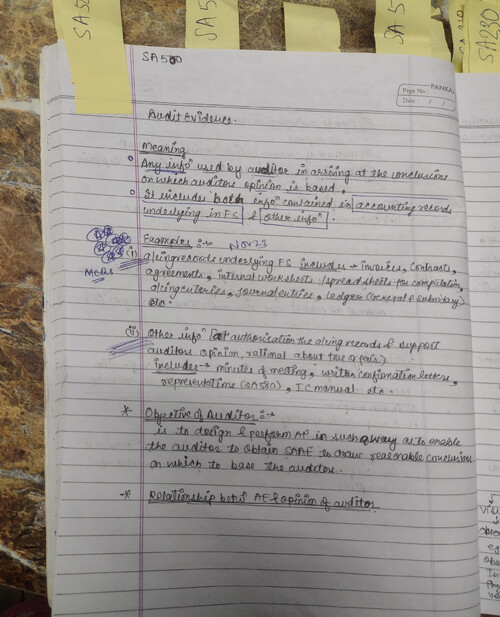 SA 5
SA 5
SA 210
SA 230
SA 500
PANKAJ
Page No.
Date / /
Audit Evidence.
Meaning
Any infoⁿ used by auditor in arriving at the conclusions
on which auditors opinion is based.
It includes both infoⁿ contained in accounting records
underlying in FS & other infoⁿ.
Examples :→ NOV 23
(i) a/cing records underlying FS includes → invoices, contracts,
MCQs agreements, internal worksheets / spreadsheets for computation,
a/cing enteries, journal enteries, Ledgers (General & subsidary)
etc.
(ii) Other infoⁿ authorization the a/cing records & support
auditors opinion, rational about true & fair)
includes → minutes of meeting, written confirmation letters,
representations (SA 580), IC manual etc.
* Objective of Auditor :→
is to design & perform AP in such a way as to enable
the auditor to obtain SAAE to draw reasonable conclusions
on which to base the auditor.
* Relationship betⁿ AE & opinion of auditor.